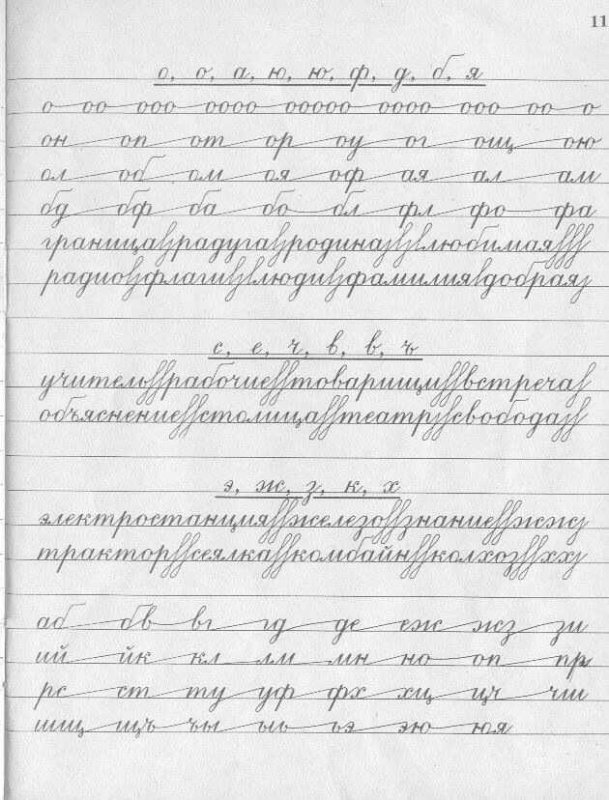 11
о, о, а, ю, ю, ф, д, б, я
о оо ооо оооо ооооо оооо ооо оо о
он оп от ор оу ог ощ ою
ол об ом оя оф ая ал ам
бд бф ба бо бл фл фо фа
граница радуга родина любимая
радио флаги люди фамилия добрая
с, е, ч, в, в, ъ
учитель рабочие товарищи встреча
объяснение столица театр свобода
э, ж, з, к, х
электростанция железо знание жж
трактор сеялка комбайн колхоз хх
аб бв вг гд де еж жз зи
ий йк кл лм мн но оп пр
рс ст ту уф фх хц цч чш
шщ щъ ъы ыь ьэ эю юя